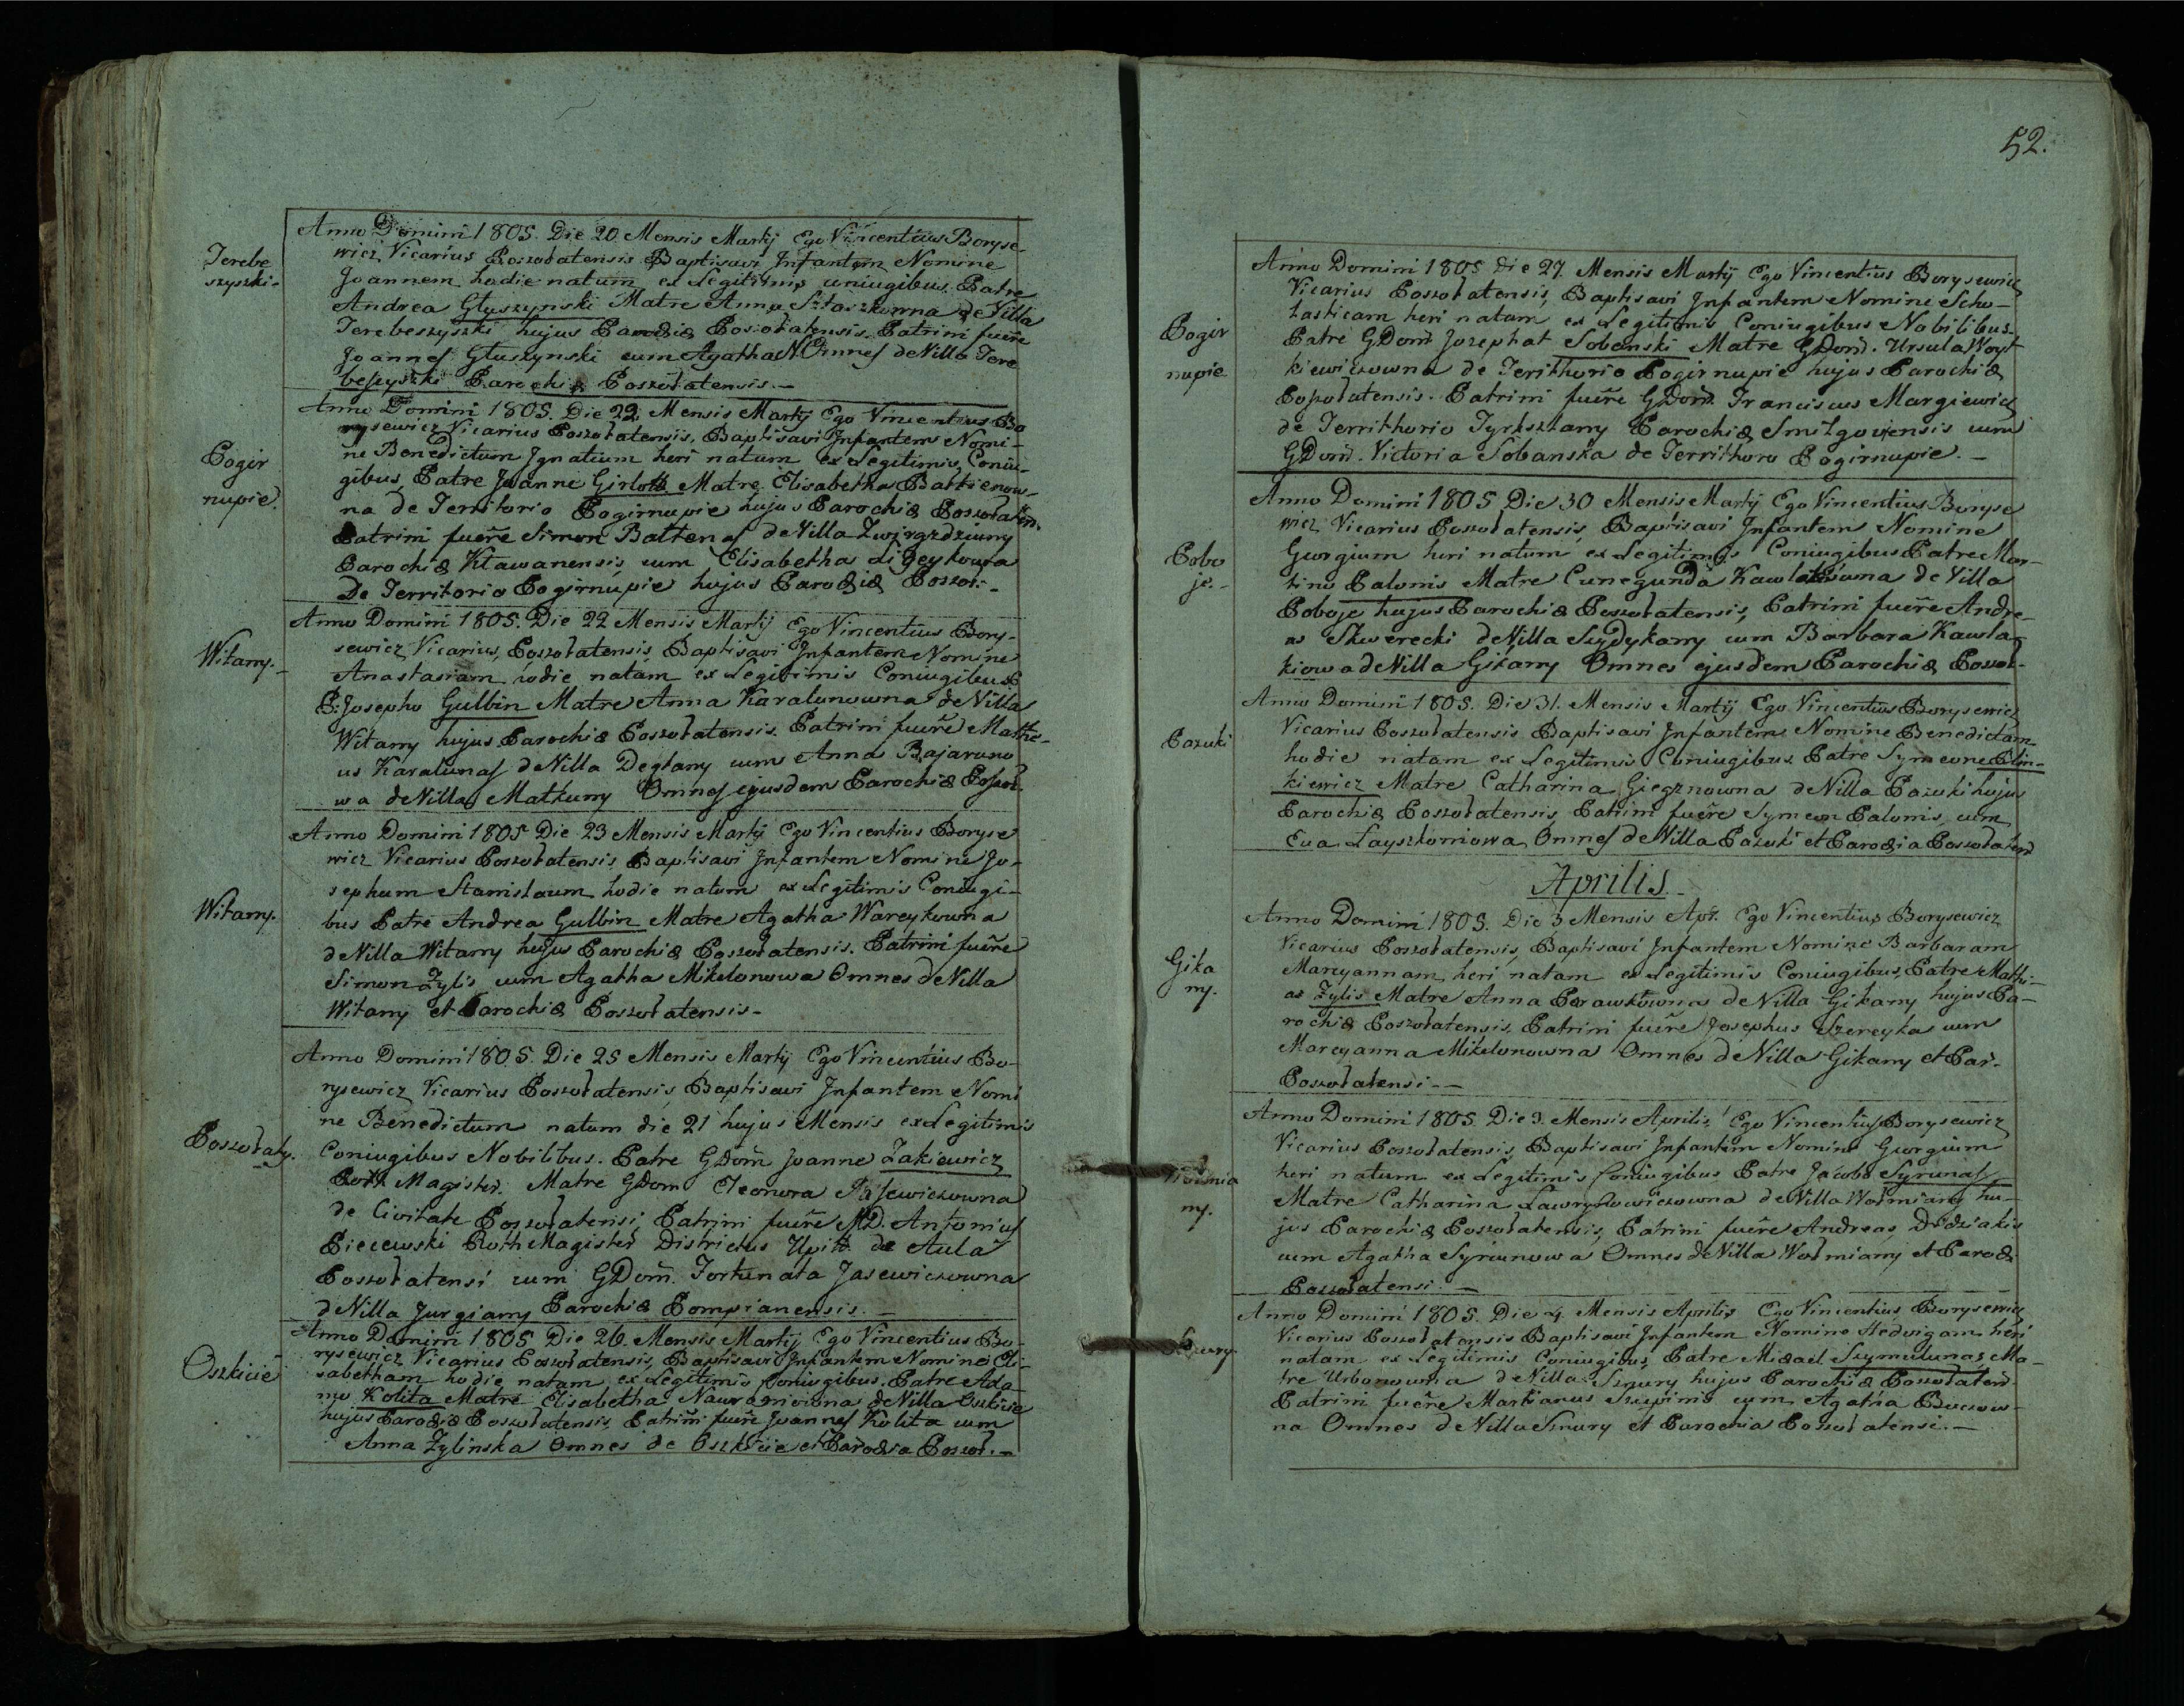 Terebe
szyszki.
Anno Domini 1805. Die 20 Mensis Martij Ego Vincentius Boryse-
wicz Vicarius Poszołatensis Baptisavi Infantem Nomine
Joannem hodie natum ex Legitimis coniugibus Patre
Andrea Głuszynski Matre Anna de Villa
Terebeszyszki hujus Parochiæ Poszołatensis. Patrini fuere
Joannes Głuszynski cum Agatha N. Omnes de Villa Tere
beszyszki Parochiæ Poszołatensis.-
Pogir
nupie.
Anno Domini 1805. Die 22 Mensis Martij Ego Vincentius Bo
rysewicz Vicarius Poszołatensis, Baptisavi Infantem Nomi-
ne Benedictum Ignatium heri natum ex Legitimis Coniu-
gibus, Patre Joanne Matre Elisabetha
na de Territorio Pogirnupie hujus Parochiæ
Patrini fuere Simon de Villa Zwirgzdziuny
Parochiæ Kławanensis, cum Elisabetha
De Territorio Pogirnupie hujus Parochiæ Poszoł.-
Witany.
Anno Domini 1805. Die 22 Mensis Martij Ego Vincentius Bory-
sewicz Vicarius, Poszołatensis Baptisavi Infantem Nomine
Anastasiam hodie natam ex Legitimis Coniugibus
P. Josepho Gulbin Matre Anna Karalunowna de Villa
Witany hujus Parochiæ Poszołatensis. Patrini fuere Mathe-
us Karalunas de Villa Deglany cum Anna Bajaruno
wa de Villa Matkuny Omnes ejusdem Parochiæ Poszoł.
Witany.
Anno Domini 1805 Die 23 Mensis Martij Ego Vincentius Boryse
wicz Vicarius Poszołatensis Baptisavi Infantem Nomine Jo-
sephum Stanislaum hodie natum ex Legitimis Coniugi-
bus Patre Andrea Gulbin Matre Agatha Wareykowna
de Villa Witany hujus Parochiæ Poszołatensis. Patrini fuere
Simon Zylis cum Agatha Mikulonowa Omnes de Villa
Witany et Parochiæ Poszołatensis-
Poszołaty.
Anno Domini 1805. Die 25 Mensis Martij Ego Vincentius Bo-
rysewicz Vicarius Poszołatensis Baptisavi Infantem Nomi
ne Benedictum natum die 21 hujus Mensis ex Legitimis
Coniugibus Nobilibus. Patre GDom Joanne Zakiewicz
Roth Magister. Matre GDom Eleonora Jasewiczowna
de Civitate Poszołatensi, Patrini fuere MD. Antonius
Pieczewski Roth Magister Districtus Upitt de Aula
Poszołatensi cum GDom. Fortunata Jasewiczowna
de Villa Jurgiany Parochiæ Pompianensis.-
Oszkicie
Anno Domini 1805 Die 26. Mensis Martij Ego Vincentius Bo-
rysewicz Vicarius Poszołatensis, Baptisavi Infantem Nomine Eli-
sabetham hodie natam ex Legitimis Coniugibus. Patre Ada-
mo Kolita Matre Elisabetha de Villa Oszkicie
hujus Parochiæ Poszołatensis, Patrini fuere Joannes Kolita cum
Anna Zylinska Omnes de Oszkicie et Parochia Poszoł.-
52.
Pogir
nupie
Anno Domini 1805 Die 27. Mensis Martij Ego Vincentius Borysewicz
Vicarius Poszołatensis, Baptisavi Infantem Nomine Scho-
lasticam heri natam ex Legitimis Coniugibus Nobilibus-
Patre GDom Josephat Sobanski Matre GDom. Ursula Woyt
kiewiczowna de Terithorio Pogirnupie hujus Parochiæ
Poszołatensis. Patrini fuere GDom. Franciscus Margiewicz
de Territhorio Tyrksztany Parochiæ Smilgoviensis cum
GDom. Victoria Sobanska de Territhorio Pogirnupie.-
Pobo
je.-
Anno Domini 1805 Die 30 Mensis Martij Ego Vincentius Boryse
wicz Vicarius Poszołatensis, Baptisavi Infantem Nomine
Georgium heri natum ex Legitimis Coniugibus Patre Mar-
tino Palonis Matre Cunegunda de Villa
Poboje hujus Parochiæ Poszołatensis, Patrini fuere Andre-
as Skwerecki de Villa Szydykany cum Barbara Kawla-
kiowa de Villa Gikany Omnes ejusdem Parochiæ Poszoł-
Pazuki
Anno Domini 1805. Die 31. Mensis Martij Ego Vincentius Borysewicz
Vicarius Poszołatensis Baptisavi Infantem Nomine Benedictam
hodie natam ex Legitimis Coniugibus Patre Symeone Plin-
kiewicz Matre Catharina Giegznowna de Villa Pazuki hujus
Parochiæ Poszołatensis, Patrini fuere Symeon Palonis, cum
Eva Layszkoniowa Omnes de Villa Pazuki et Parochia Poszołatensi
Aprilis.
Gika
ny.
Anno Domini 1805. Die 3 Mensis Apr. Ego Vincentius Borysewicz
Vicarius Poszołatensis, Baptisavi Infantem Nomine Barbaram
Marcyannam heri natam ex Legitimis Coniugibus, Patre Mathi-
as Zylis Matre Anna de Villa Gikany hujus Pa-
rochiæ Poszołatensis, Patrini fuere Josephus Szereyka cum
Marcyanna Mikulonowna Omnes de Villa Gikany et Par.
Poszołatensi.-
Wołmia
ny.
Anno Domini 1805. Die 3. Mensis Aprilis Ego Vincentius Borysewicz
Vicarius Poszołatensis, Baptisavi Infantem Nomine Georgium
heri natum ex Legitimis Coniugibus Patre Jacobo Syrunas
Matre Catharina Lawrynowiczowna de Villa Wołmiany hu-
jus Parochiæ Poszołatensis, Patrini fuere Andreas Dzidziakis
cum Agatha Syrunowa Omnes de Villa Wołmiany et Paroch.
Poszołatensi.-
Anno Domini 1805. Die 4. Mensis Aprilis Ego Vincentius Borysewicz
Vicarius Poszołatensis Baptisavi Infantem Nomine Hedwigam heri
natam ex Legitimis Coniugibus, Patre Michael Szymulunas, Ma-
tre Urbonowna de Villa Smury hujus Parochiæ Poszołatens.
Patrini fuere Martianus cum Agatha
na Omnes de Villa Smury et Parochia Poszołatensi.-